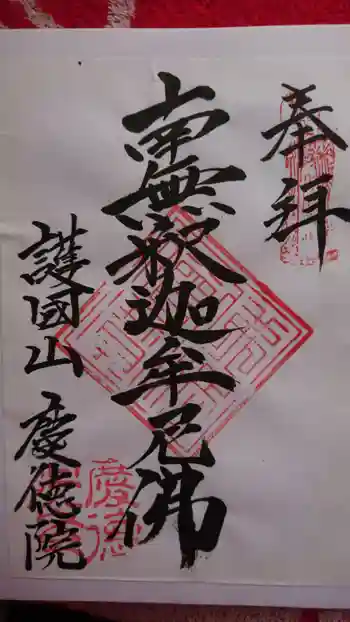 奉拝
南無釈迦牟尼佛
護國山 慶徳院
慶徳